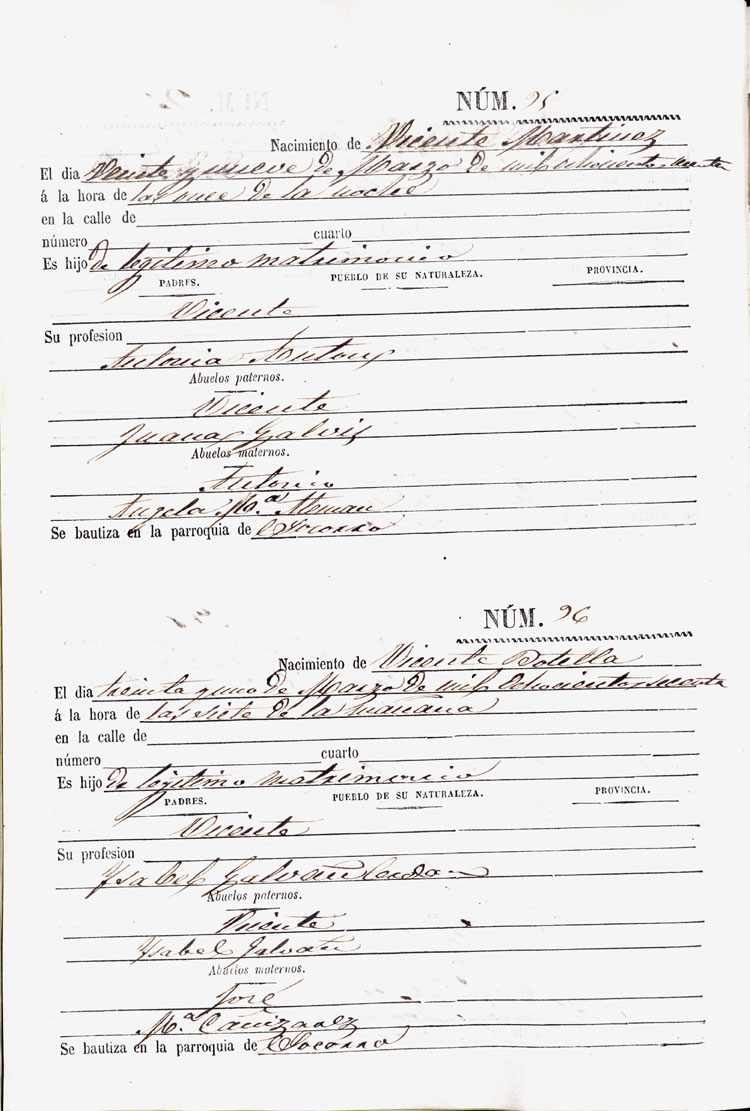 NÚM. 95
Nacimiento de Vicente Martinez
El dia Veinte y nueve de Marzo de mil ochocientos
á la hora de las once de la noche
en la calle de
número cuarto
Es hijo de legitimo matrimonio
PADRES. PUEBLO DE SU NATURALEZA. PROVINCIA.
Vicente
Su profesion
Antonia Anton
Abuelos paternos.
Vicente
Juana Galvis
Abuelos maternos.
Antonio
Angela M.ª Aleman
Se bautiza en la parroquia de el Socorro
NÚM. 96
Nacimiento de Vicente Botella
El dia treinta y uno de Marzo de mil ochocientos sesenta
á la hora de las siete de la mañana
en la calle de
número cuarto
Es hijo de legitimo matrimonio
PADRES. PUEBLO DE SU NATURALEZA. PROVINCIA.
Vicente
Su profesion
Ysabel Galvañ
Abuelos paternos.
Vicente
Ysabel Galvañ
Abuelos maternos.
José
M.ª Cañizarez
Se bautiza en la parroquia de el Socorro